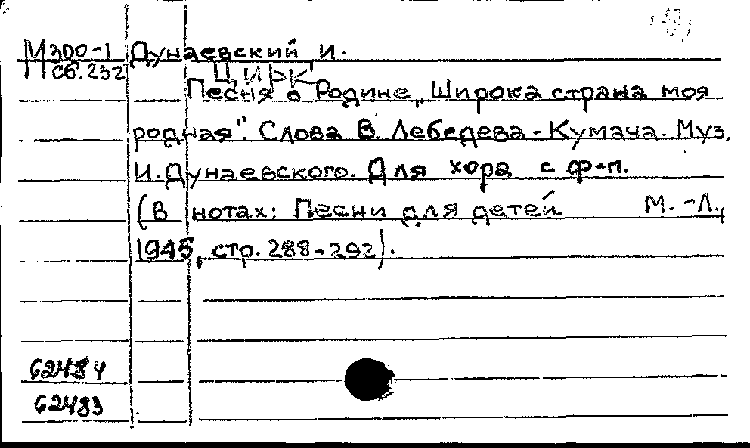 М300-1 Дунаевский И.
Сб.232 Цирк
Песня о Родине „Широка страна моя
родная". Слова В. Лебедева-Кумача. Муз.
И. Дунаевского. Для хора с ф-п.
(В нотах: Песни для детей М.-Л.,
1945, стр. 288-292).
62484
62483